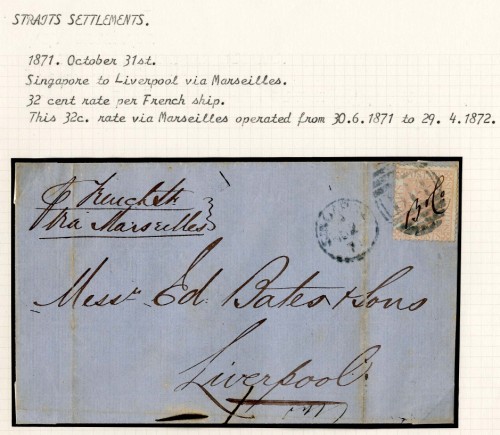 STRAITS SETTLEMENTS.
1871. October 31st.
Singapore to Liverpool via Marseilles.
32 cent rate per French ship.
This 32c. rate via Marseilles operated from 30.6.1871 to 29. 4.1872.
French Str
Via Marseilles
Messrs Ed. Bates & Sons
Liverpool.